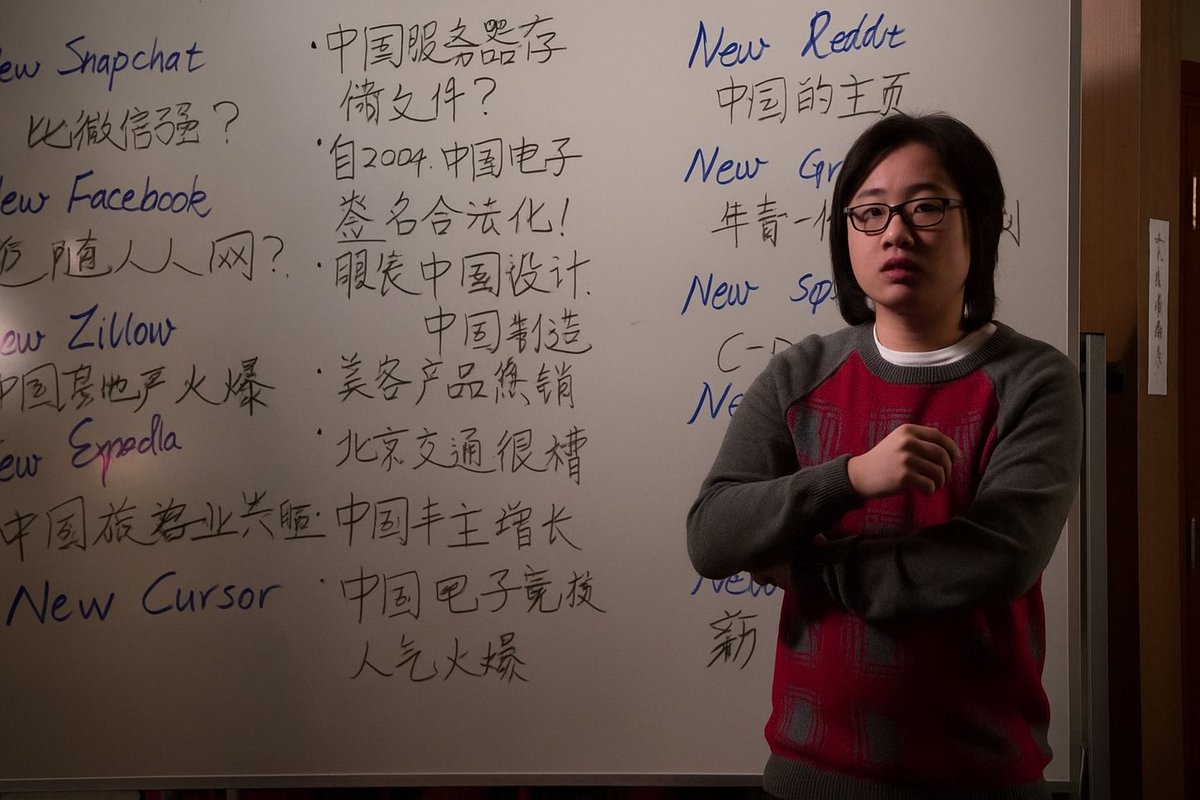 ew Snapchat
比微信强？
ew Facebook
随人人网？
ew Zillow
中国房地产火爆
ew Expedia
中国旅客业共
New Cursor
·中国服务器存
储文件？
·自2004.中国电子
签名合法化！
·服装中国设计.
中国制造
·美容产品热销
·北京交通很糟
·中国丰主增长
·中国电子竞技
人气火爆
New Reddt
中国的主页
New Gr
年青一
New Sp
C-
Ne
New
新